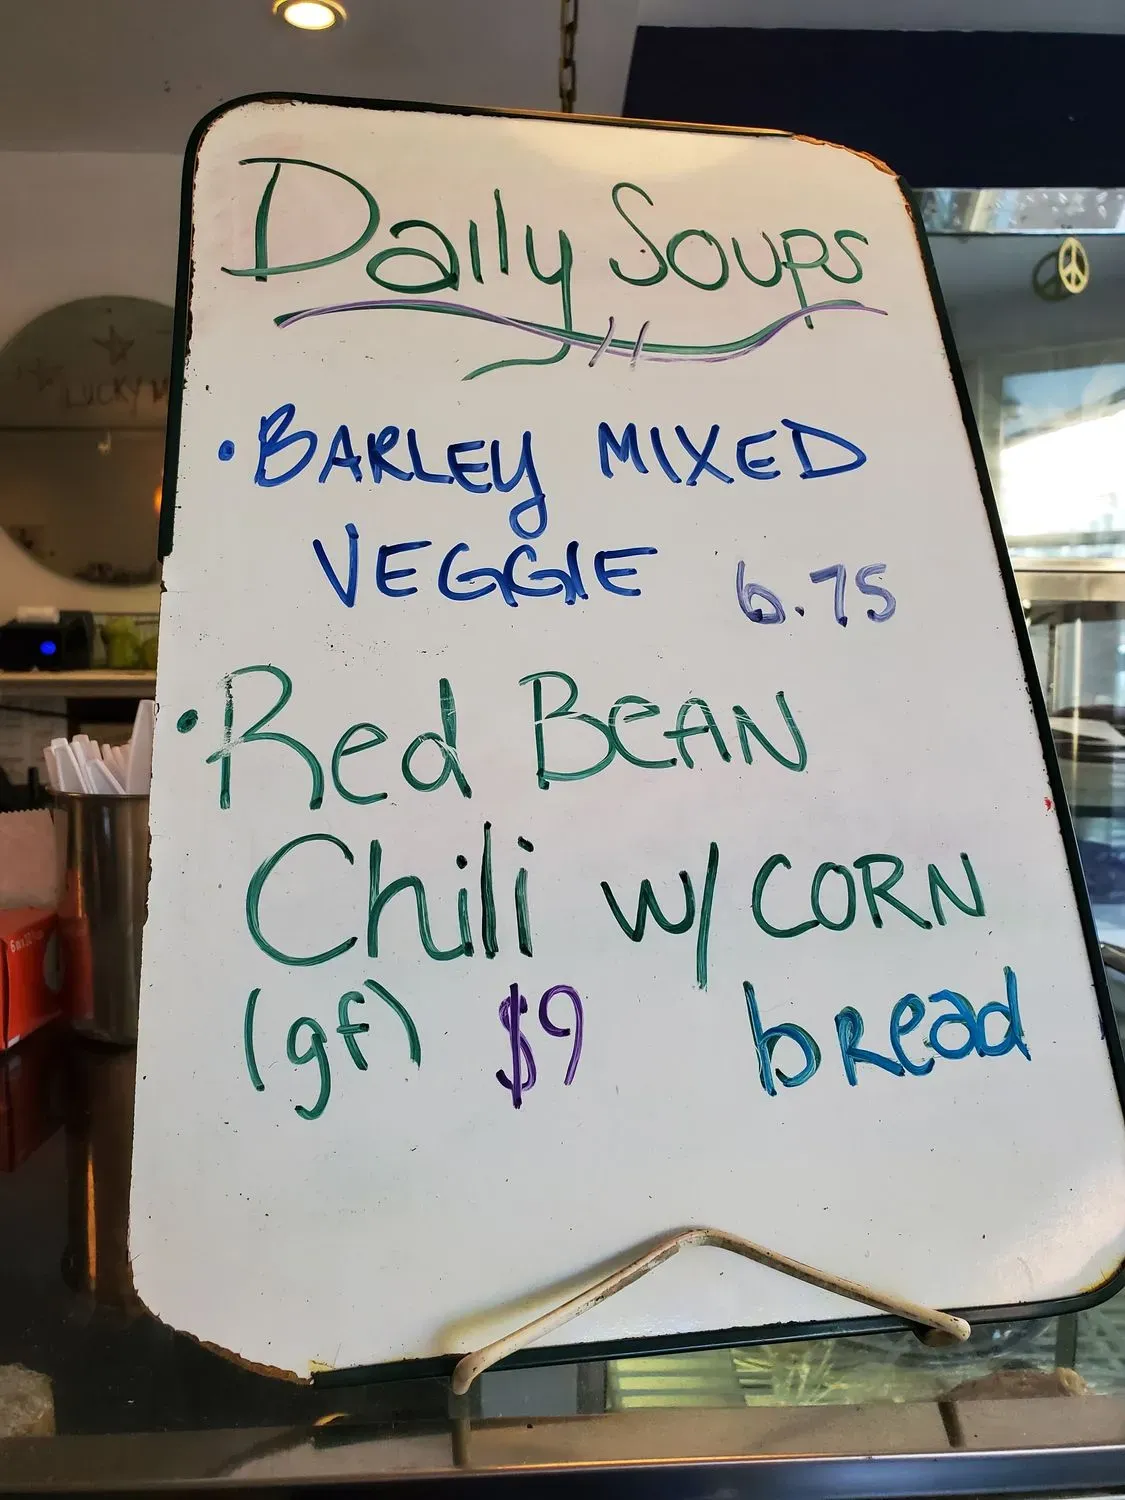 Daily Soups
• BARLEY MIXED
VEGGIE 6.75
• Red BEAN
Chili w/ CORN
(gf) $9 bread
LUCKY